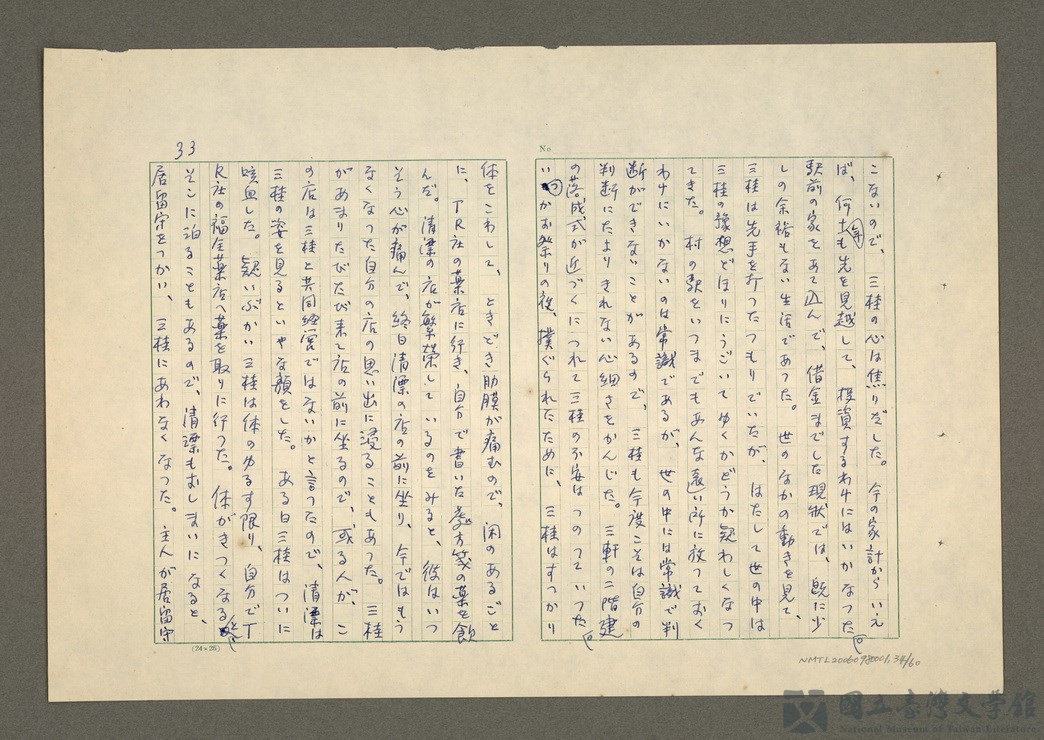 No.
こないので、三桂の心は焦りだした。今の家計からいえ
ば、何年も先を見越して、投資するわけにはいかなかった。
駅前の家をあて込んで、借金までした現状では、既に少
しの余裕もない生活であった。世のなかの動きを見て、
三桂は先手を打ったつもりでいたが、はたして世の中は
三桂の豫想どほりにうごいてゆくかどうか疑わしくなっ
てきた。村の駅をいつまでもあんな遠い所に放っておく
わけにいかないのは常識であるが、世の中には常識で判
断ができないことがあるので、三桂も今度こそは自分の
判断にたよりきれない心細さをかんじた。三軒の二階建
の落成式が近づくにつれて三桂の不安はつのっていった。
いつかお祭りの夜、撲ぐられたために、三桂はすっかり
33
体をこわして、ときどき肋膜が痛むので、閑のあるごと
に、TR社の薬店に行き、自分で書いた処方箋の薬を飲
んだ。清漂の店が繁栄しているのをみると、彼はいつ
そう心が痛んで、終日清漂の店の前に坐り、今ではもう
なくなった自分の店の思い出に浸ることもあった。三桂
があまりたびたび来て店の前に坐るので、或る人が、こ
の店は三桂と共同経営ではないかと言ったので、清漂は
三桂の姿を見るといやな顔をした。ある日三桂はついに
咳血した。疑いぶかい三桂は体のゆるす限り、自分でT
R社の福全薬店へ薬を取りに行った。体がきつくなると
そこに泊ることもあるので、清漂もおしまいになると、
居留守をつかい、三桂にあわなくなった。主人が居留守
(24×25)
NMTL20060980001, 34/60
國立臺灣文學館
National Museum of Taiwan Literature